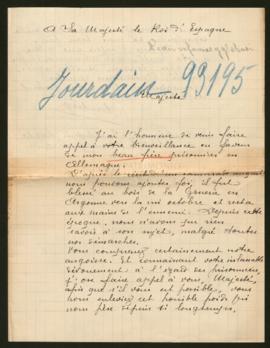 A Sa Majesté le Roi d'Espagne
Jourdain 93195
Majesté
J'ai l'honneur de venir faire
appel à votre bienveillance en faveur
de mon beau frère prisonnier en
Allemagne.
D'après le
nous pouvons ajouter foi, il fut
blessé au bois de la Gruerie en
Argonne vers la mi octobre et resta
aux mains de l'ennemi. Depuis cette
époque, nous n'avons pu rien
savoir à son sujet, malgré toutes
nos démarches.
Vous comprenez certainement notre
angoisse. Et connaissant votre inlassable
dévouement à l'égard des prisonniers,
j'ose faire appel à vous, Majesté,
afin que s'il vous est possible, vous
nous enleviez cet horrible poids qui
nous pèse depuis si longtemps.